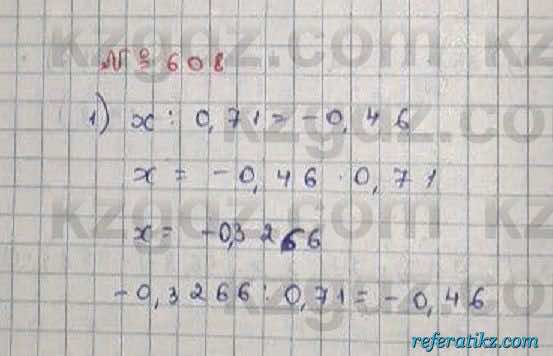 № 608
1) x : 0,71 = -0,46
x = -0,46 · 0,71
x = -0,3266
-0,3266 : 0,71 = -0,46
kzgdz.com
referatikz.com